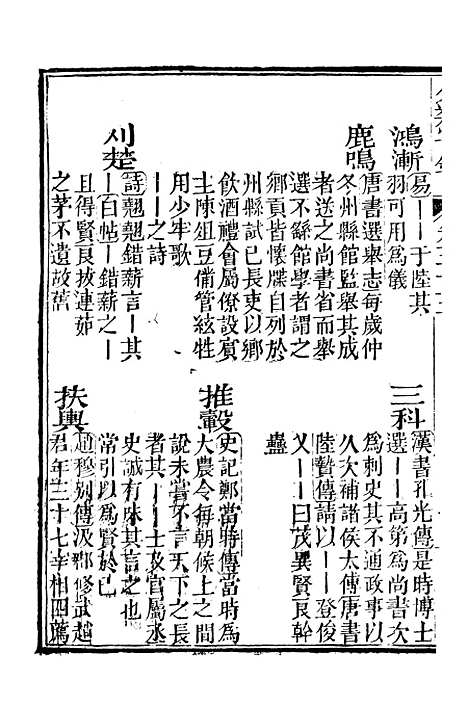 鴻漸
易――于陸其
羽可用為儀
鹿鳴
唐書選舉志每歲仲
冬州縣館監舉其成
者送之尚書省而舉
選不繇館學者謂之
鄉貢皆懷牒自列於
州縣試已長吏以鄉
飲酒禮會屬僚設賓
主陳俎豆備管絃牲
用少牢歌
――之詩
刈楚
詩翹翹錯薪言―其
―百帖―錯薪之―
且得賢良拔連茹
之茅不遺故舊
三科
漢書孔光傳是時博士
選――高第為尚書次
為刺史其不通政事以
久次補諸侯太傅唐書
陸贄傳請以――登俊
乂――曰茂異賢良幹
蠱
推轂
史記鄭當時傳當時為
大農令每朝候上之間
說未嘗不言天下之長
者其――士及官屬丞
史誠有味其言之也
常引以為賢於已
扶輿
趙穆別傳汲郡修武越
君年三十七宰相四薦